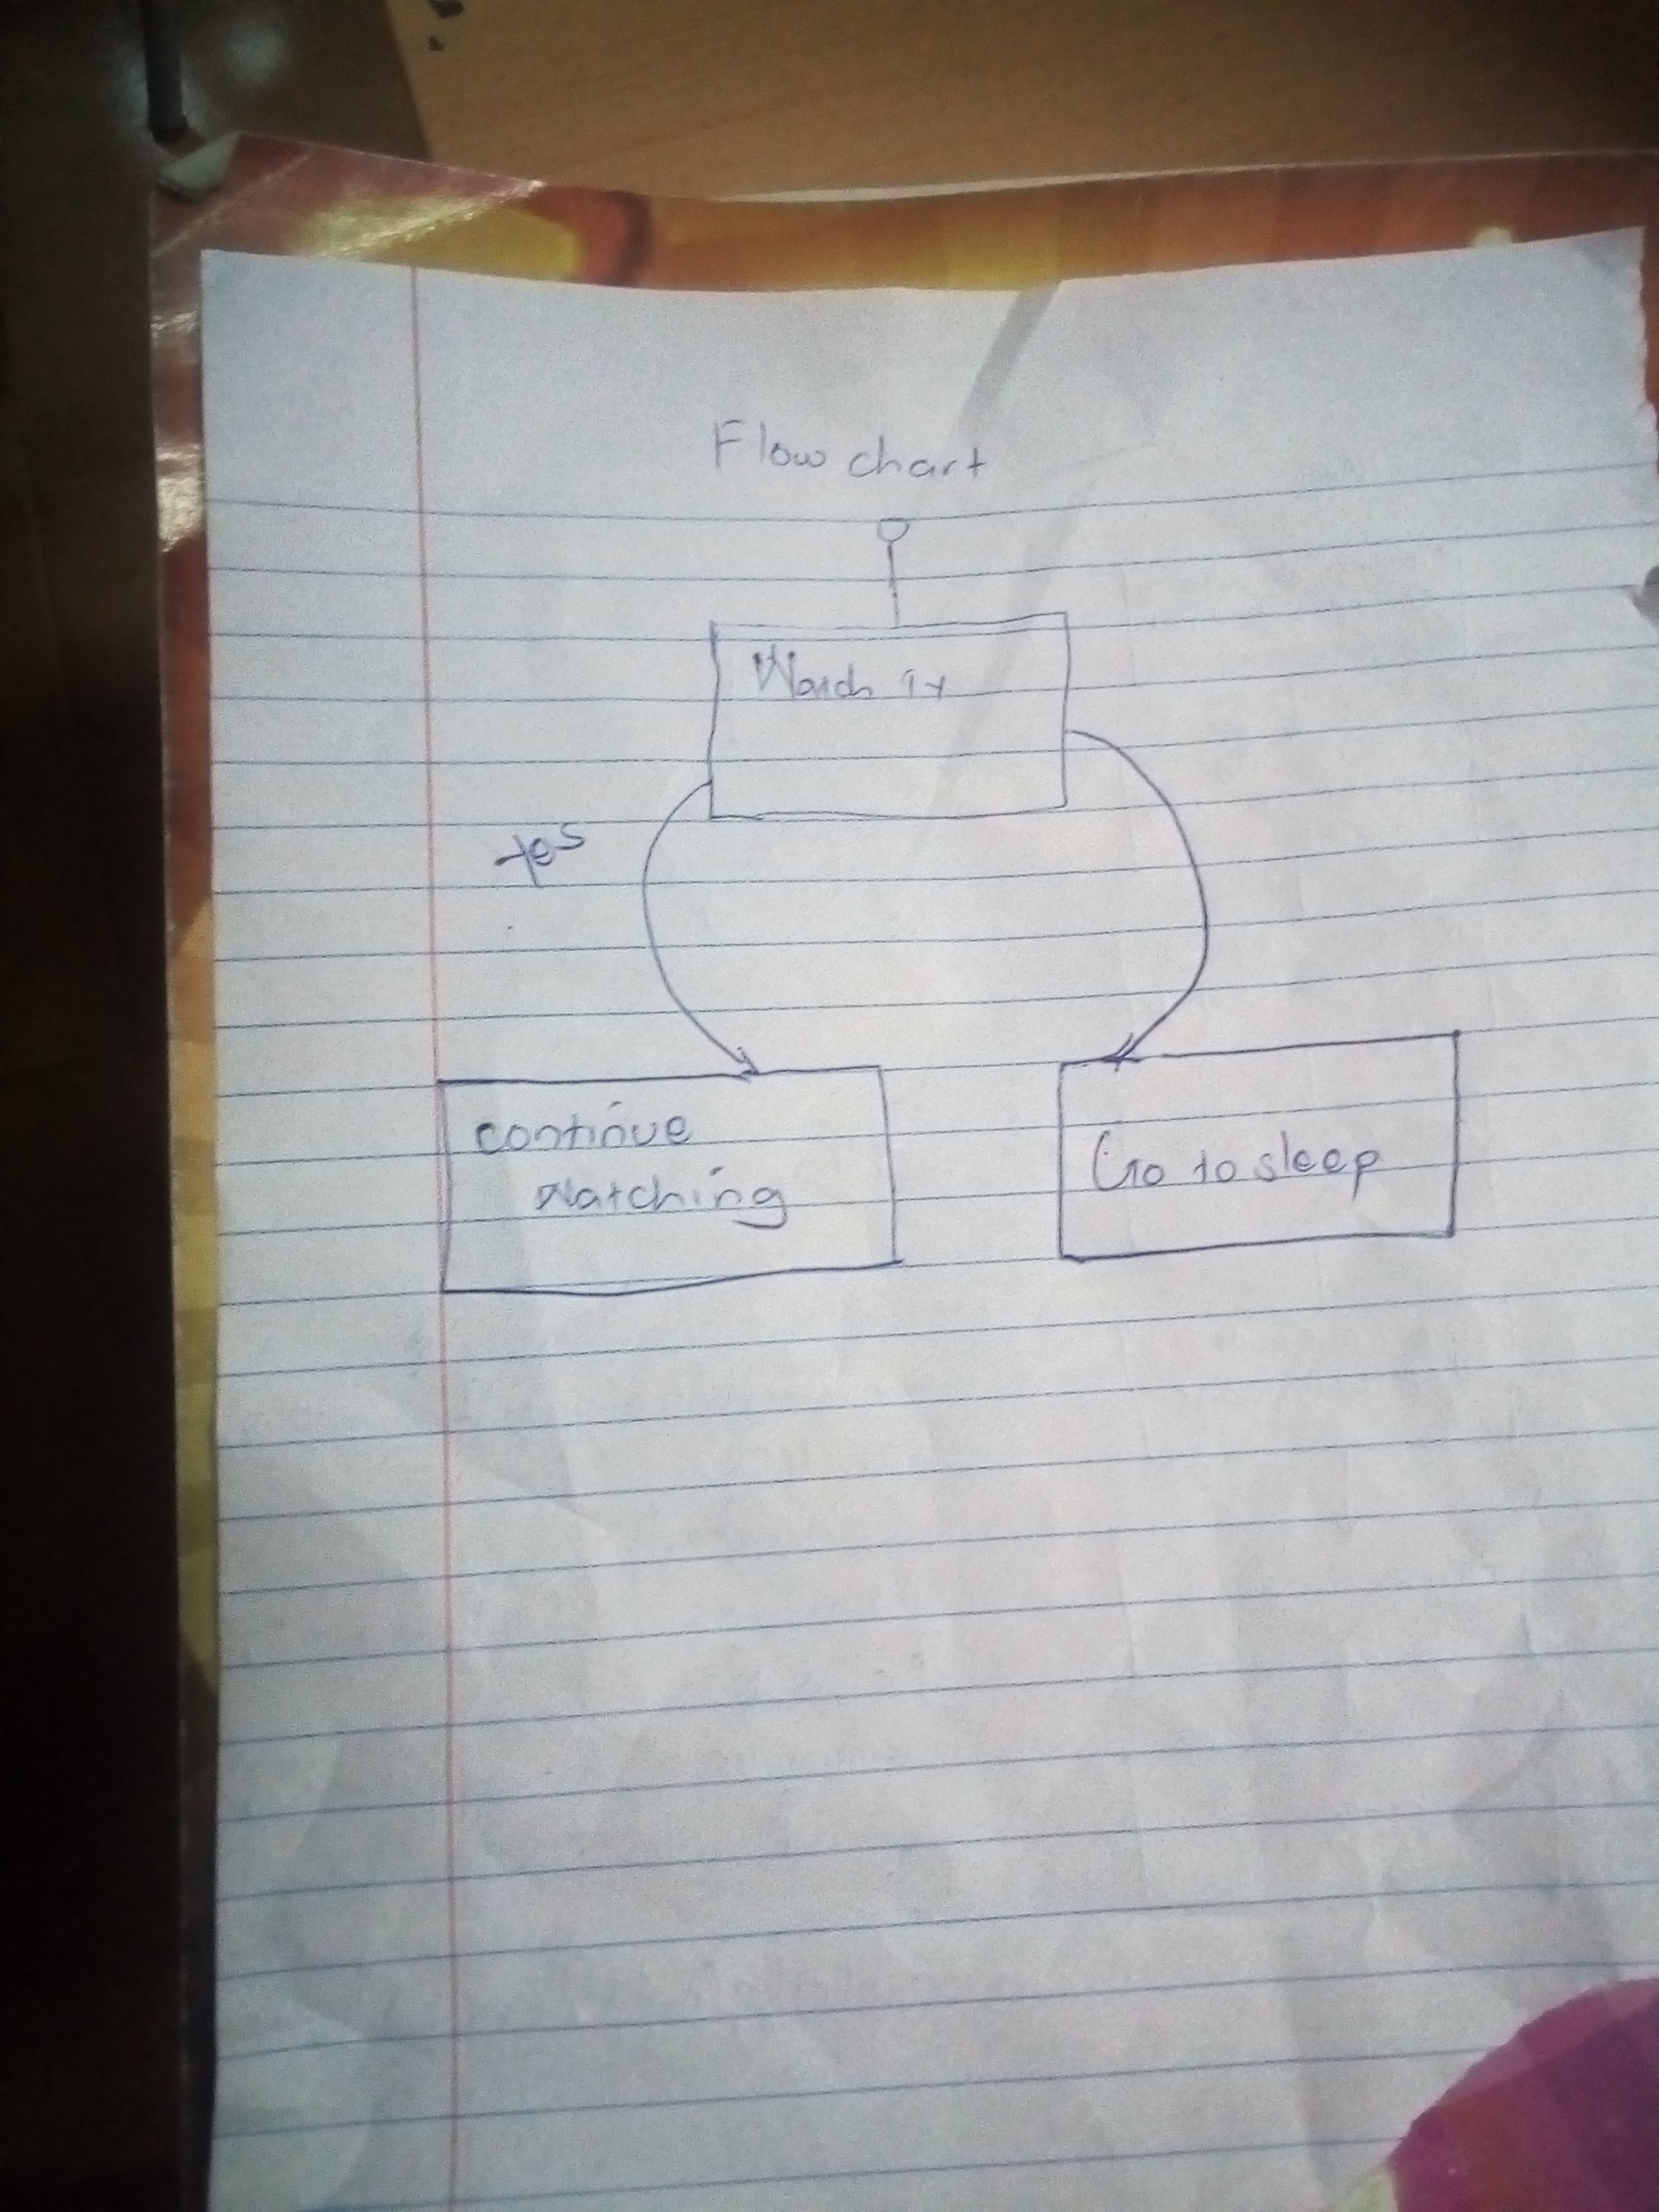 Flow chart
Watch it
yes
continue
watching
Go to sleep